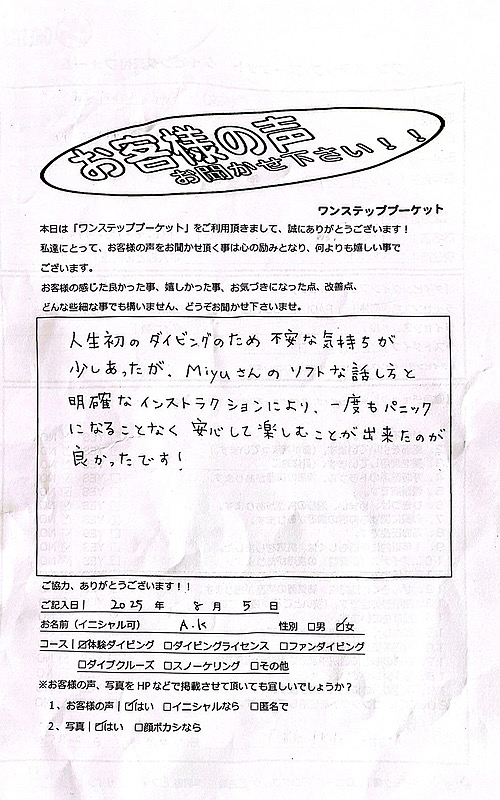 お客様の声
お聞かせ下さい！！
ワンステッププーケット
本日は「ワンステッププーケット」をご利用頂きまして、誠にありがとうございます！
私達にとって、お客様の声をお聞かせ頂く事は心の励みとなり、何よりも嬉しい事で
ございます。
お客様の感じた良かった事、嬉しかった事、お気づきになった点、改善点、
どんな些細な事でも構いません、どうぞお聞かせ下さいませ。
人生初の ダイビングのため 不安な気持ちが
少しあったが、Miyuさんの ソフトな話し方と
明確な インストラクションにより、一度もパニック
になることなく 安心して楽しむことが出来たのが
良かったです！
ご協力、ありがとうございます！！
ご記入日| 2025 年 8 月 5 日
お名前（イニシャル可） A.K 性別 □男 ☑女
コース| ☑体験ダイビング □ダイビングライセンス □ファンダイビング
□ダイブクルーズ □スノーケリング □その他
※お客様の声、写真を HP などで掲載させて頂いても宜しいでしょうか？
1、お客様の声| ☑はい □イニシャルなら □匿名で
2、写真| ☑はい □顔ボカシなら